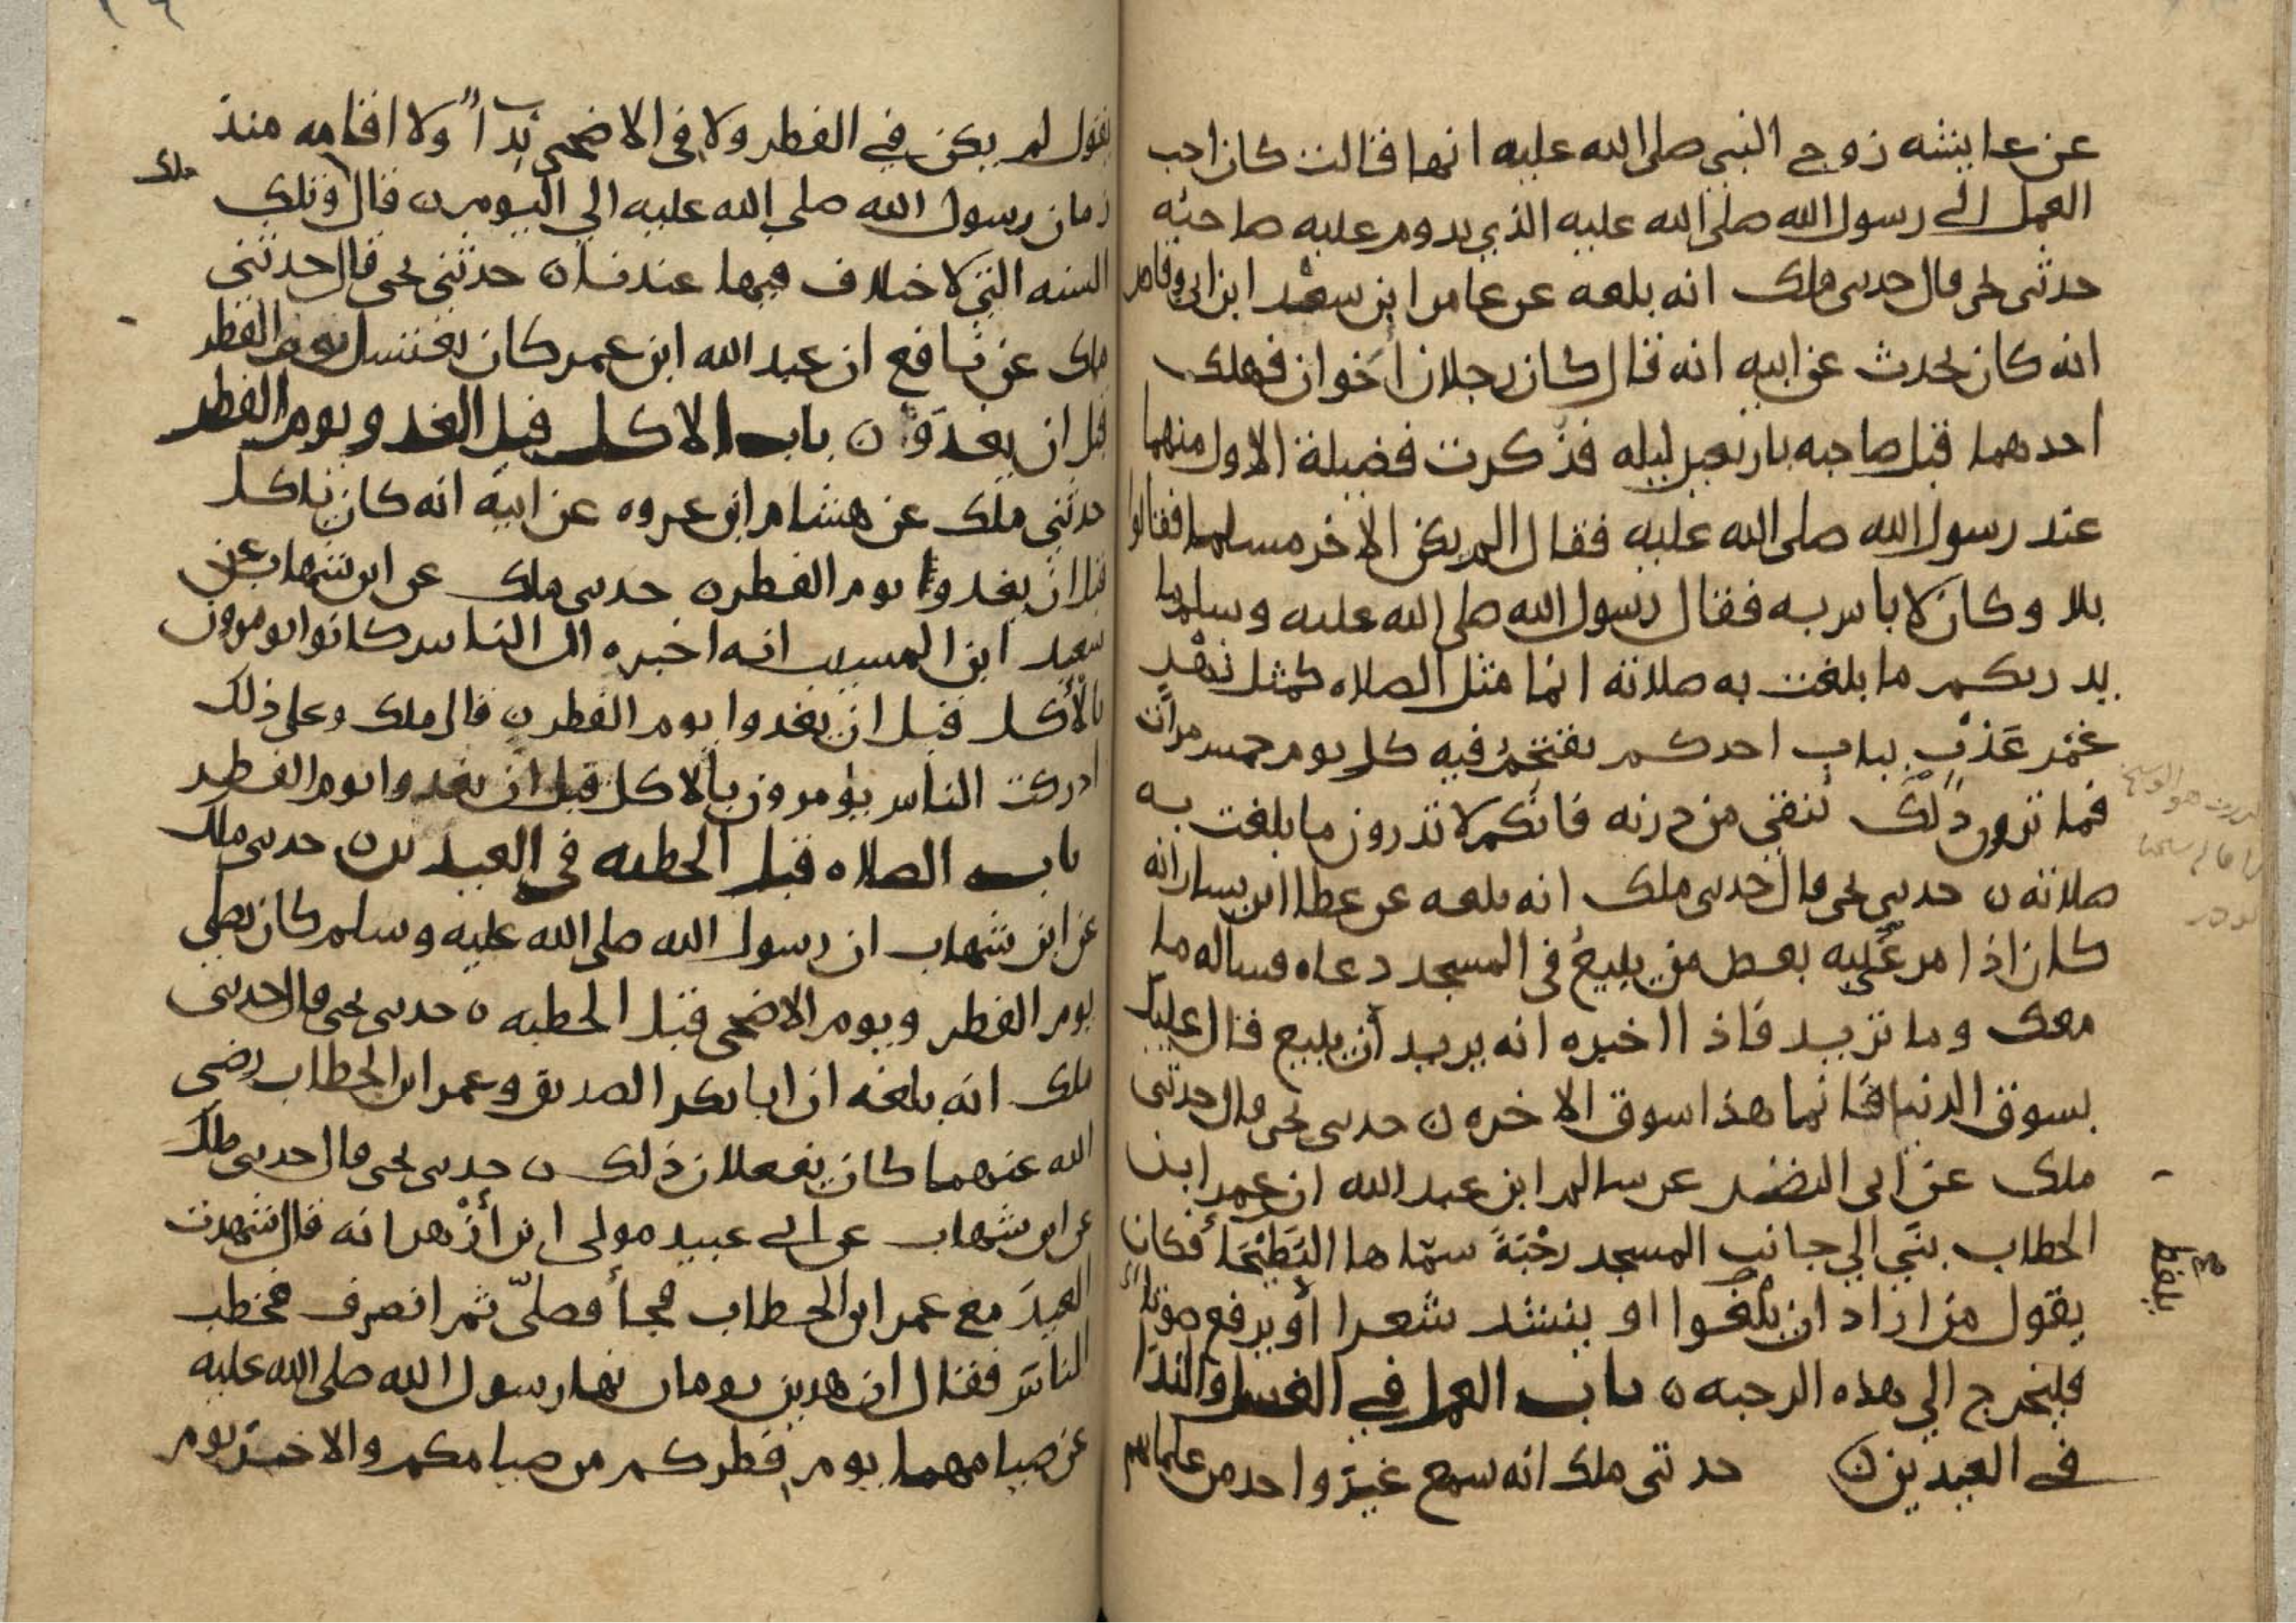 عن عايشه زوج النبي صلى الله عليه انها قالت كان احب
العمل الى رسول الله صلى الله عليه الذي يدوم عليه صاحبه
حدثنى يحى قال حدثنى ملك انه بلغه عن عامر ابن سعد ابن ابي وقاص
انه كان يحدث عن ابيه انه قال كان رجلان اخوان فهلك
احدهما قبل صاحبه باربعين ليله فذكرت فضيلة الاول منهما
عند رسول الله صلى الله عليه فقال الم يكن الاخر مسلما فقالوا
بلا وكان لا باس به فقال رسول الله صلى الله عليه وسلم وما
يدريكم ما بلغت به صلاته انما مثل الصلاه كمثل نهر
غمر عذب بباب احدكم يقتحم فيه كل يوم خمس مرات
فما ترون ذلك ينقي من درنه فانكم لا تدرون ما بلغت به
صلاته ن حدثنى يحى قال حدثنى ملك انه بلغه عن عطا ابن يسار انه
كان اذا مر عليه بعض من يبيع في المسجد دعاه فساله ما
معك وما تريد فاذا اخبره انه يريد ان يبيع قال عليك
بسوق الدنيا فانما هذا سوق الاخره ن حدثنى يحى قال حدثنى
ملك عن ابى النضر عن سالم ابن عبد الله ان عمر ابن
الخطاب بنى الي جانب المسجد رحبة سماها البطيحا فكان
يقول من اراد ان يلغوا او ينشد شعرا أو يرفع صوتا
يلغط
فليخرج الي هذه الرحبه ن باب العمل في الغسل والندا
في العيدين ن حدثنى ملك انه سمع غير واحد من علمائهم
يقول لم يكن في الفطر ولا في الاضحى ندآ ولا اقامه منذ
زمان رسول الله صلى الله عليه الي اليوم ن قال وتلك
ملك
السنه التي لا خلاف فيها عندنا ن حدثني يحى قال حدثني
ملك عن نافع ان عبد الله ابن عمر كان يغتسل يوم الفطر
قبل ان يغدوا ن باب الاكل قبل الغدو يوم الفطر
حدثني ملك عن هشام ابن عروه عن ابيه انه كان ياكل
قبل ان يغدوا يوم الفطر ن حدثنى ملك عن ابن شهاب عن
سعيد ابن المسيب انه اخبره ان الناس كانوا يومرون
بالأكل قبل ان يغدوا يوم الفطر ن قال ملك وعلى ذلك
ادركت الناس يؤمرون بالاكل قبل ان يغدوا يوم الفطر
باب الصلاه قبل الخطبه في العيدين ن حدثنى ملك
عن ابن شهاب ان رسول الله صلى الله عليه وسلم كان يصلي
يوم الفطر ويوم الاضحى قبل الخطبه ن حدثنى يحى قال حدثنى
ملك انه بلغه ان ابا بكر الصديق وعمر ابن الخطاب رضى
الله عنهما كان يفعلان ذلك ن حدثنى يحى قال حدثنى ملك
عن ابن شهاب عن ابي عبيد مولى ابن أزهر انه قال شهدت
العيد مع عمر ابن الخطاب فجأ فصلى ثم انصرف فخطب
الناس فقال ان هذين يومان نها رسول الله صلى الله عليه
عن صيامهما يوم فطركم من صيامكم والاخر يوم